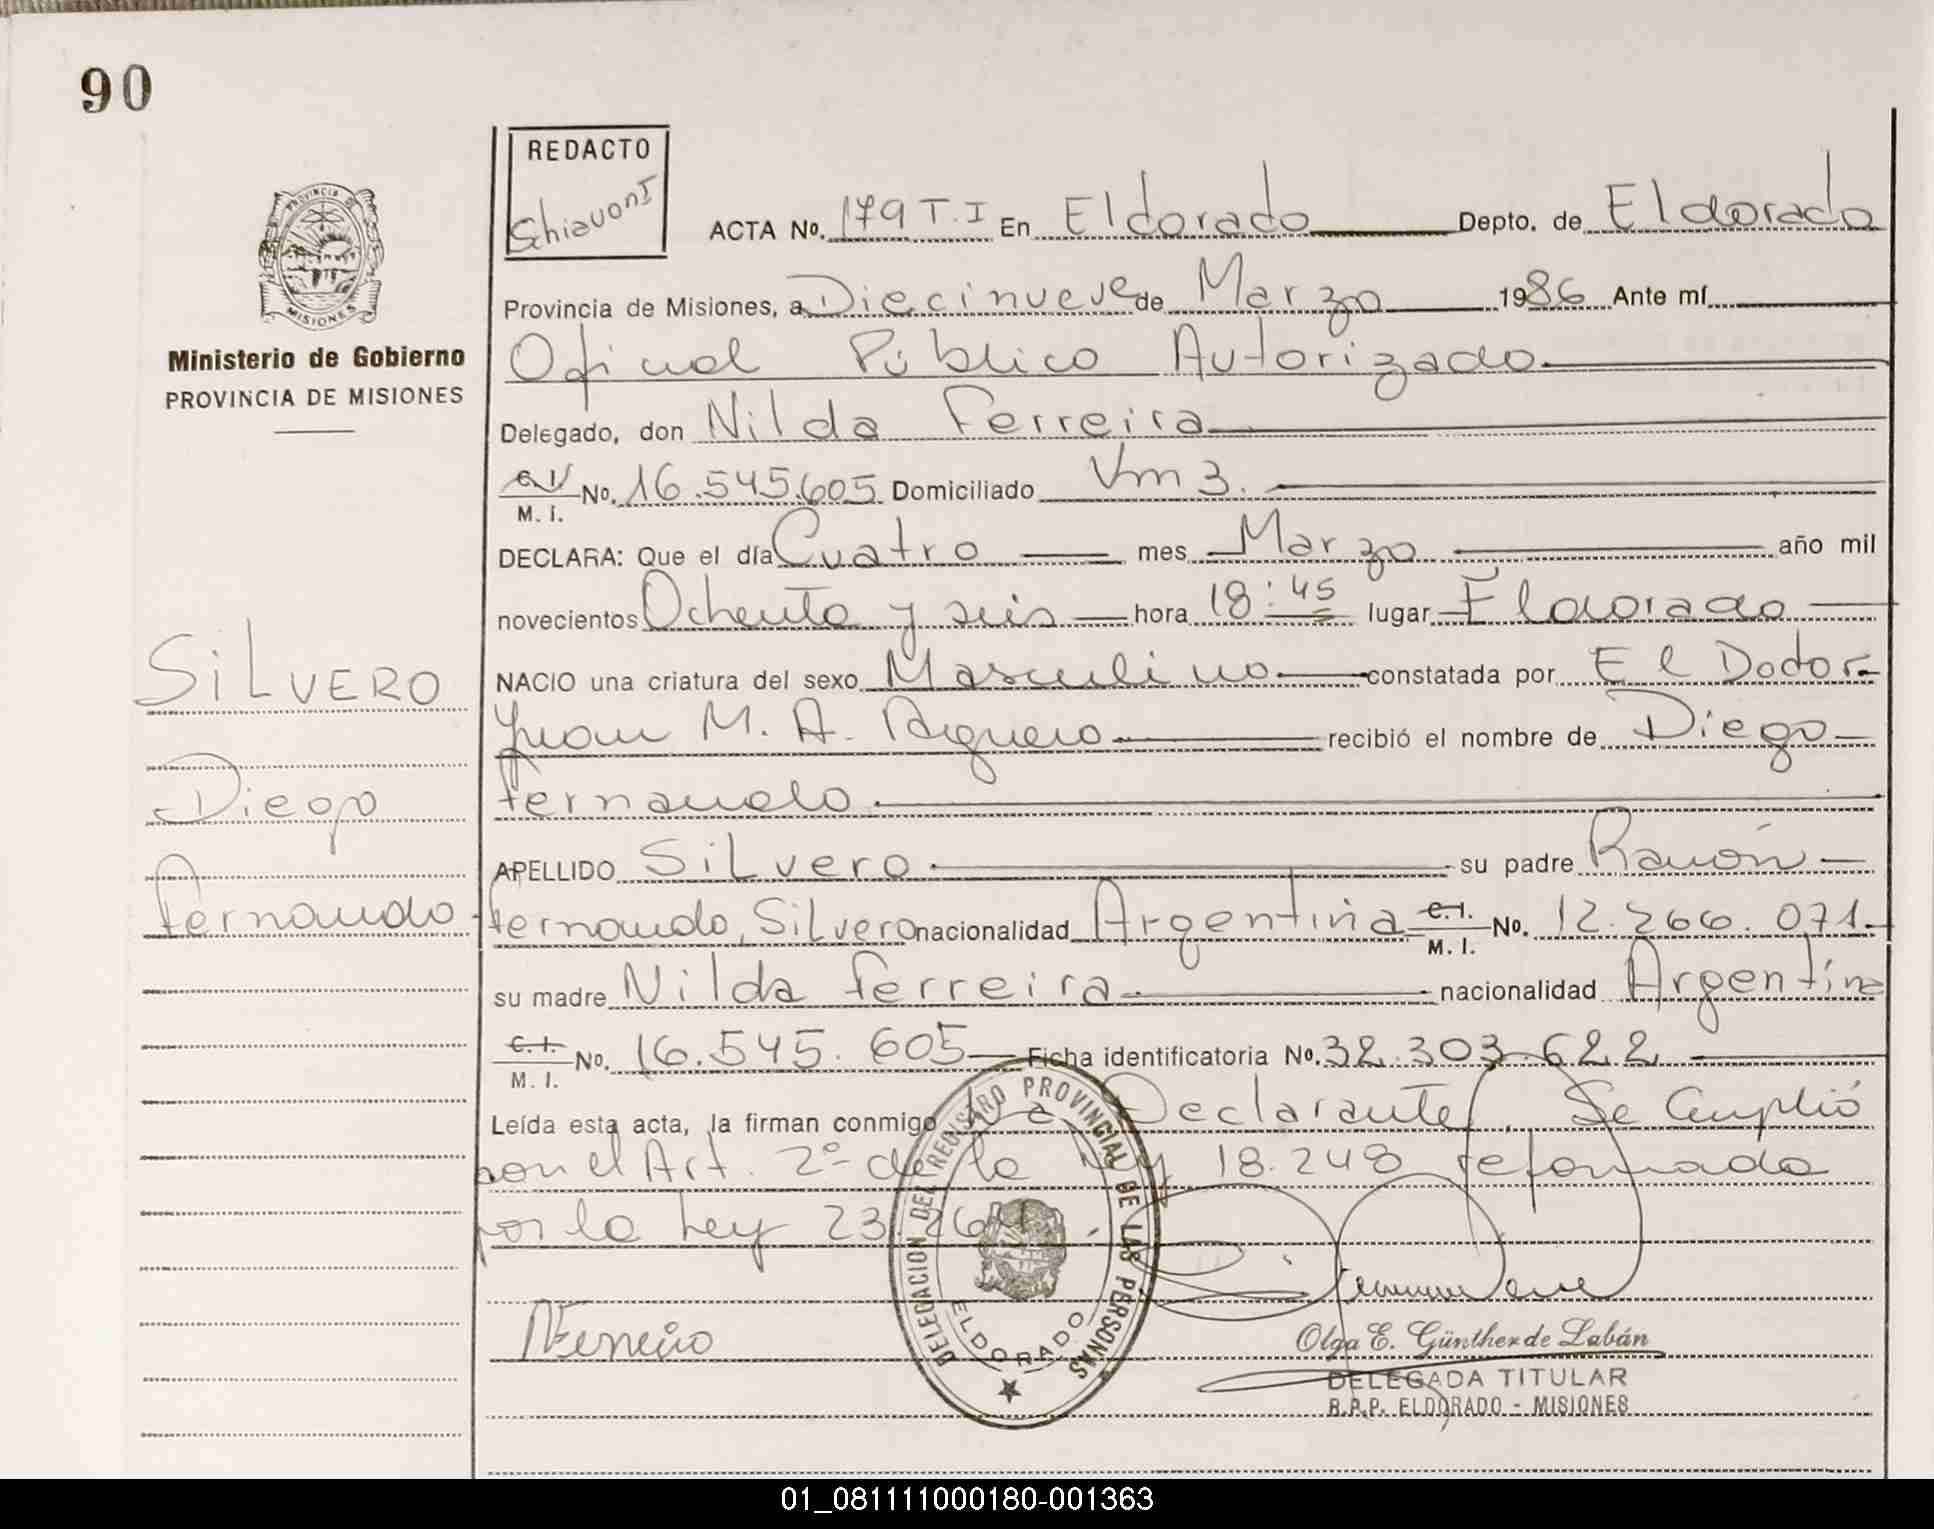 90
REDACTO
Schiavoni
ACTA No. 179 T.I En Eldorado Depto. de Eldorado
PROVINCIA DE
MISIONES
Provincia de Misiones, a Diecinueve de Marzo 1986 Ante mí
Ministerio de Gobierno
PROVINCIA DE MISIONES
Oficial Público Autorizado
Delegado, don Nilda Ferreira
No. 16.545.605 Domiciliado Km 3.
M. I.
DECLARA: Que el día Cuatro mes Marzo año mil
novecientos Ochenta y seis hora 18:45 lugar Eldorado
NACIO una criatura del sexo Masculino constatada por El Doctor
Juan M. A. recibió el nombre de Diego
Fernando
APELLIDO Silvero su padre Ramón
Fernando, Silvero nacionalidad Argentina C.I. No. 12.266.071
M. I.
su madre Nilda Ferreira nacionalidad Argentina
C.I. No. 16.545.605 Ficha identificatoria No. 32.303.622
M. I.
Leída esta acta, la firman conmigo La Declarante, Se Cumplió
con el Art. 2º de la Ley 18.248 reformada
por la Ley 23.264.
SiLVERO
Diego
Fernando
DELEGACION DEL REGISTRO PROVINCIAL DE LAS PERSONAS
ELDORADO
Olga E. Günther de Labán
DELEGADA TITULAR
R.P.P. ELDORADO - MISIONES
01_081111000180-001363